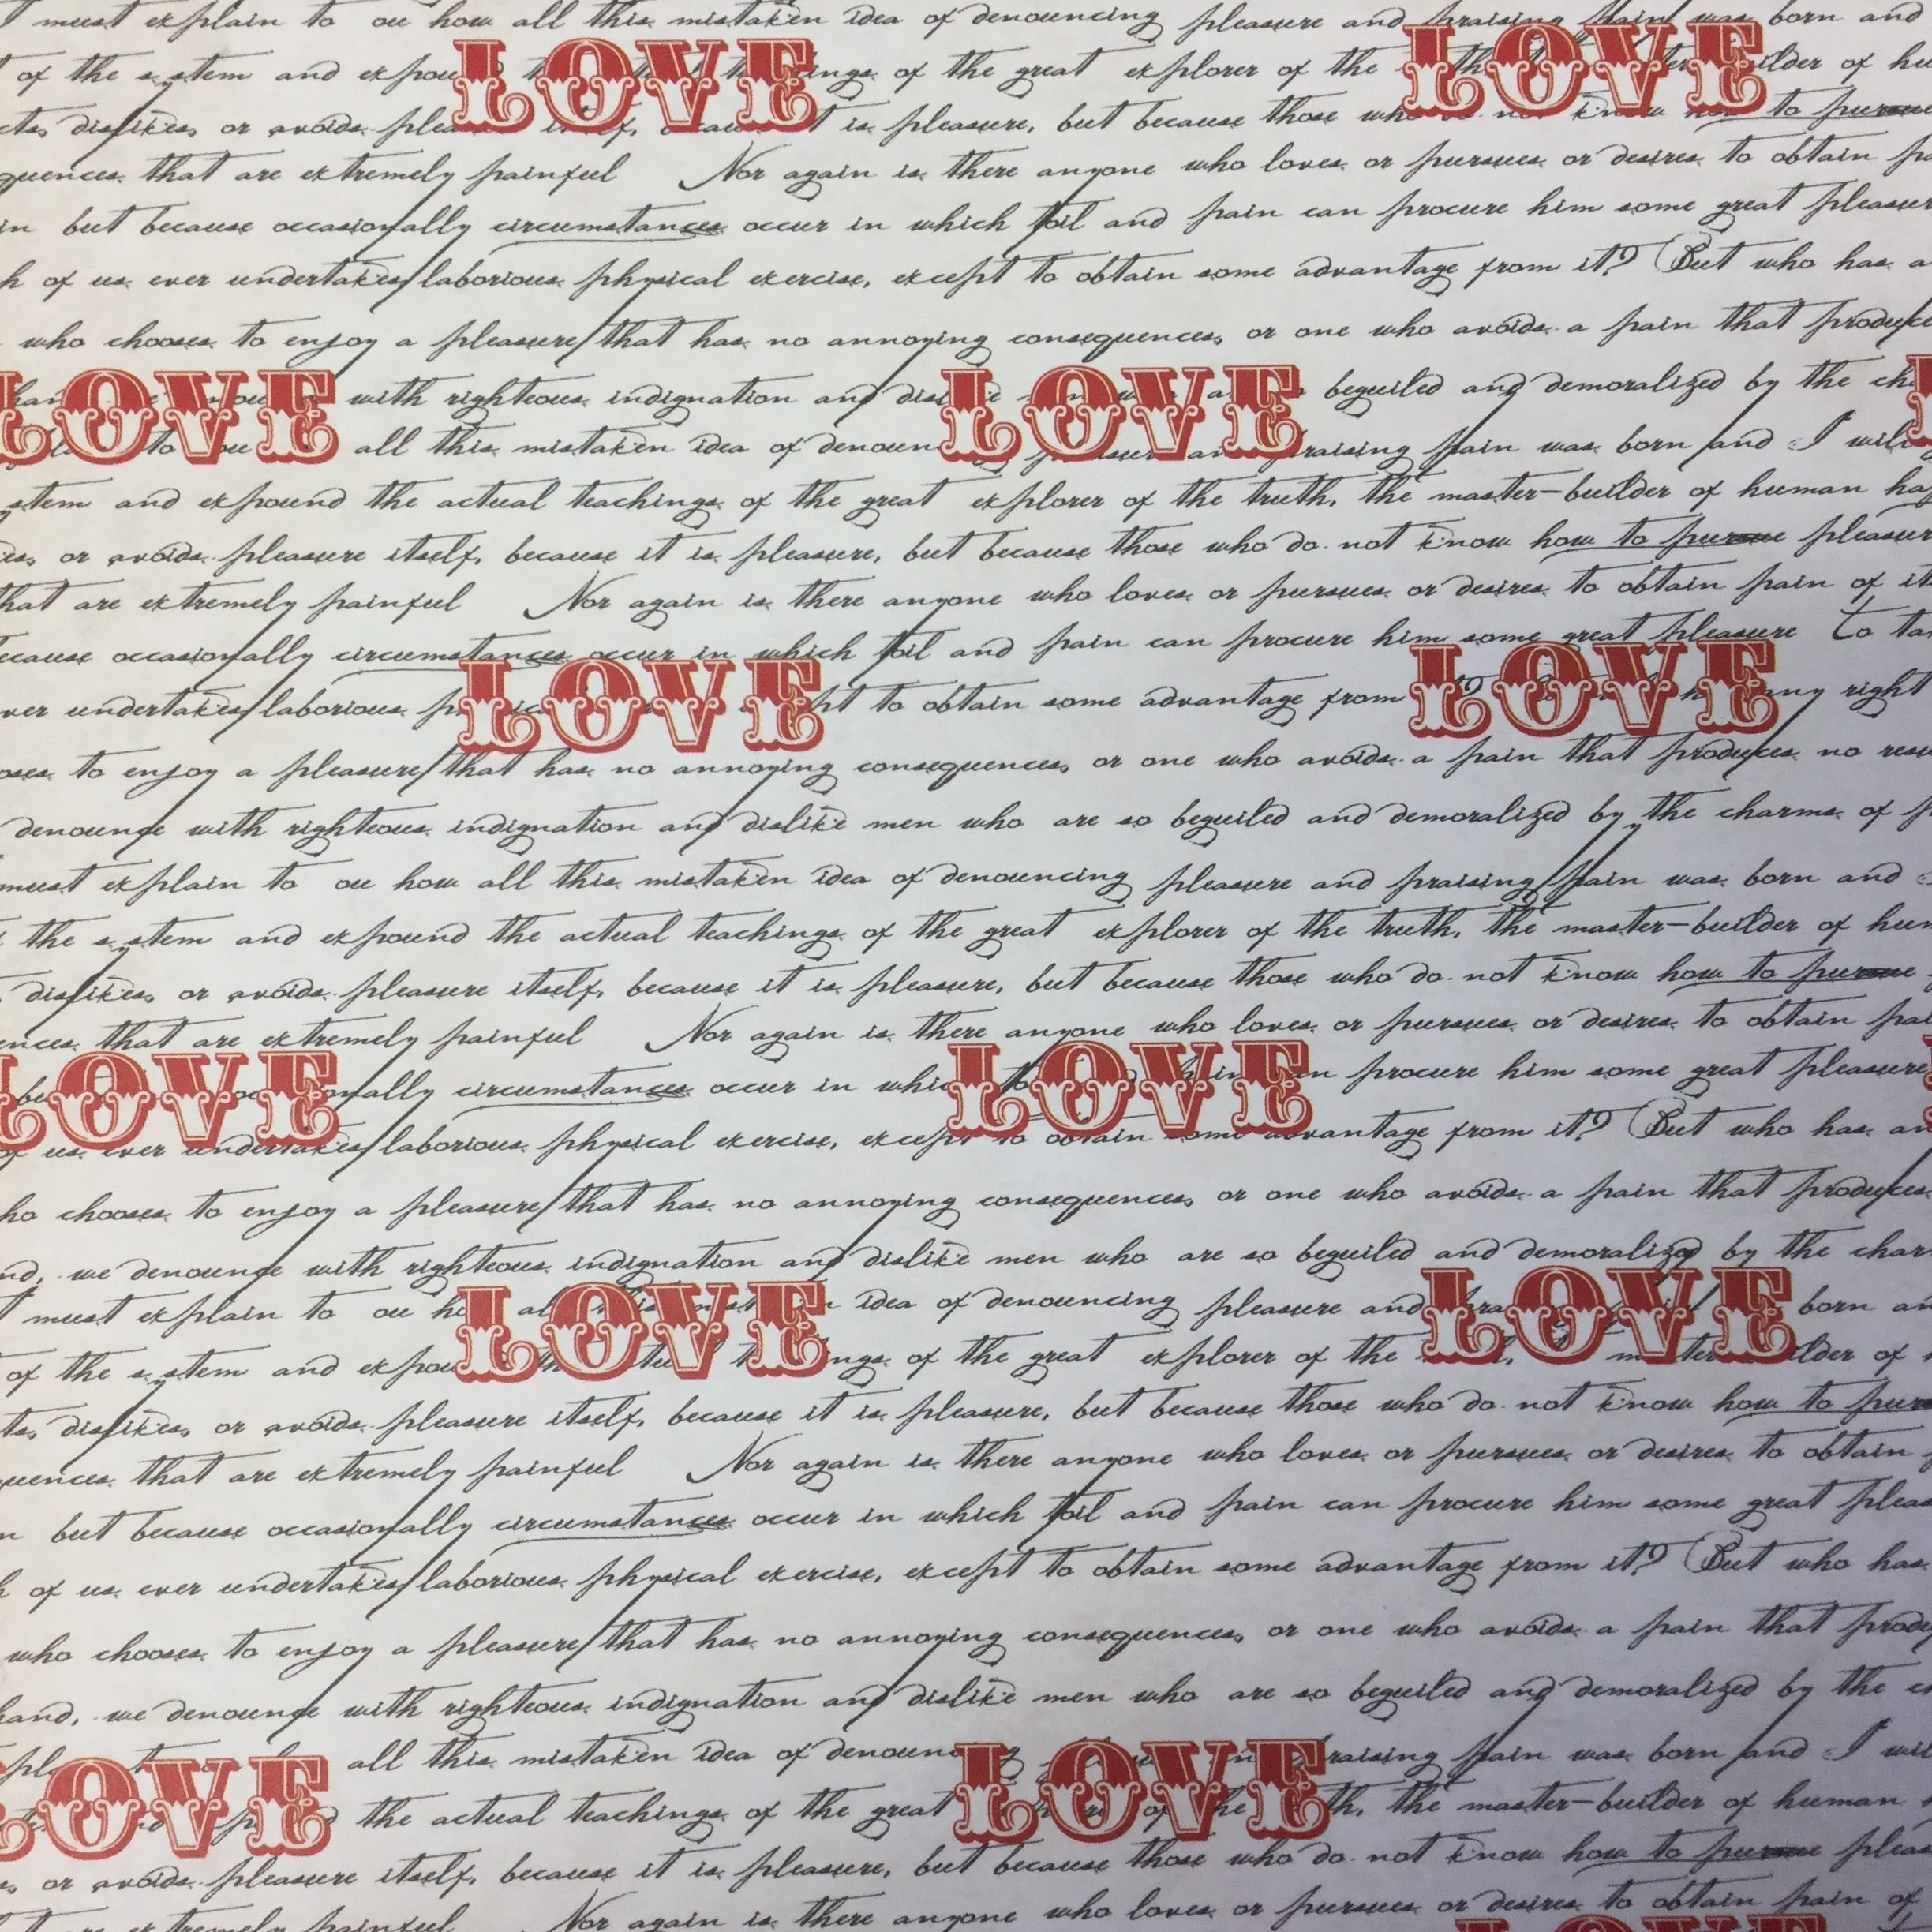 must explain to ou how all this mistaken idea of denouncing pleasure and praising pain was born and
of the s stem and expou LOVE ings of the great explorer of the LOVE ilder of hu
cts, dislikes, or avoids pleasure itself, because it is pleasure, but because those who do not know how to pursue
quences that are extremely painful Nor again is there anyone who loves or pursues or desires to obtain pa
in but because occasionally circumstances occur in which toil and pain can procure him some great pleasur
h of us ever undertakes laborious physical exercise, except to obtain some advantage from it? But who has a
who chooses to enjoy a pleasure that has no annoying consequences, or one who avoids a pain that produce
LOVE with righteous indignation and dis LOVE beguiled and demoralized by the ch
to ou all this mistaken idea of denoun praising pain was born and I will
ystem and expound the actual teachings of the great explorer of the truth, the master-builder of human ha
es, or avoids pleasure itself, because it is pleasure, but because those who do not know how to pursue pleasur
that are extremely painful Nor again is there anyone who loves or pursues or desires to obtain pain of it
ecause occasionally circumstances occur in which toil and pain can procure him some great pleasure To ta
ver undertakes laborious LOVE pt to obtain some advantage from LOVE any right
oses to enjoy a pleasure that has no annoying consequences, or one who avoids a pain that produces no resu
denounce with righteous indignation and dislike men who are so beguiled and demoralized by the charms of p
must explain to ou how all this mistaken idea of denouncing pleasure and praising pain was born and
the s stem and expound the actual teachings of the great explorer of the truth, the master-builder of hum
dislikes, or avoids pleasure itself, because it is pleasure, but because those who do not know how to pursue
ences that are extremely painful Nor again is there anyone who loves or pursues or desires to obtain pai
LOVE onally circumstances occur in whic LOVE n procure him some great pleasure
of us ever undertakes laborious physical exercise, except to obtain some advantage from it? But who has an
ho chooses to enjoy a pleasure that has no annoying consequences, or one who avoids a pain that produces
nd, we denounce with righteous indignation and dislike men who are so beguiled and demoralized by the char
must explain to ou ho LOVE idea of denouncing pleasure and LOVE born an
of the s stem and expou ngs of the great explorer of the lder of
ts, dislikes, or avoids pleasure itself, because it is pleasure, but because those who do not know how to purs
quences that are extremely painful Nor again is there anyone who loves or pursues or desires to obtain
n but because occasionally circumstances occur in which toil and pain can procure him some great pleas
of us ever undertakes laborious physical exercise, except to obtain some advantage from it? But who has
who chooses to enjoy a pleasure that has no annoying consequences, or one who avoids a pain that produ
hand, we denounce with righteous indignation and dislike men who are so beguiled and demoralized by the c
LOVE all this mistaken idea of denounc LOVE praising pain was born and I wil
the actual teachings of the great of the th, the master-builder of human
s, or avoids pleasure itself, because it is pleasure, but because those who do not know how to pursue pleas
extremely painful Nor again is there anyone who loves or pursues or desires to obtain pain of
LOVE